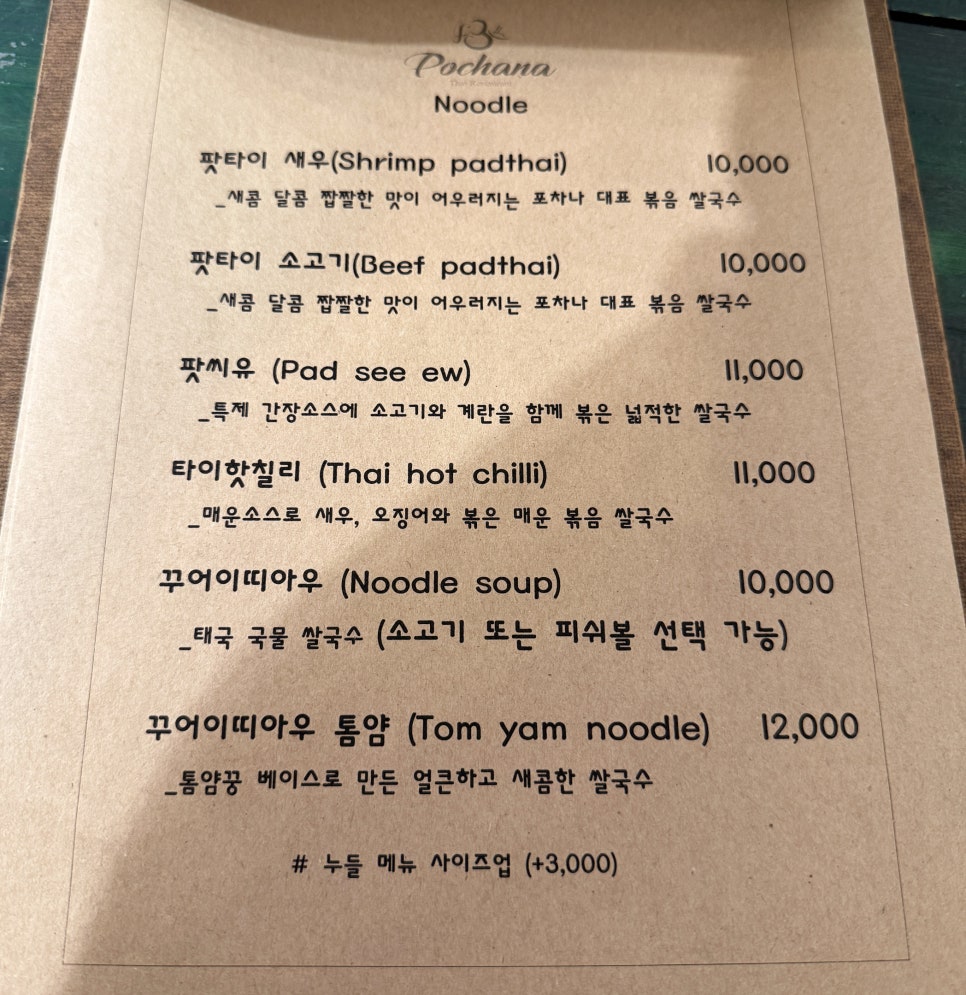 Pochana
Noodle
팟타이 새우(Shrimp padthai) 10,000
_새콤 달콤 짭짤한 맛이 어우러지는 포차나 대표 볶음 쌀국수
팟타이 소고기(Beef padthai) 10,000
_새콤 달콤 짭짤한 맛이 어우러지는 포차나 대표 볶음 쌀국수
팟씨유 (Pad see ew) 11,000
_특제 간장소스에 소고기와 계란을 함께 볶은 넓적한 쌀국수
타이핫칠리 (Thai hot chilli) 11,000
_매운소스로 새우, 오징어와 볶은 매운 볶음 쌀국수
꾸어이띠아우 (Noodle soup) 10,000
_태국 국물 쌀국수 (소고기 또는 피쉬볼 선택 가능)
꾸어이띠아우 톰얌 (Tom yam noodle) 12,000
_톰얌꿍 베이스로 만든 얼큰하고 새콤한 쌀국수
# 누들 메뉴 사이즈업 (+3,000)